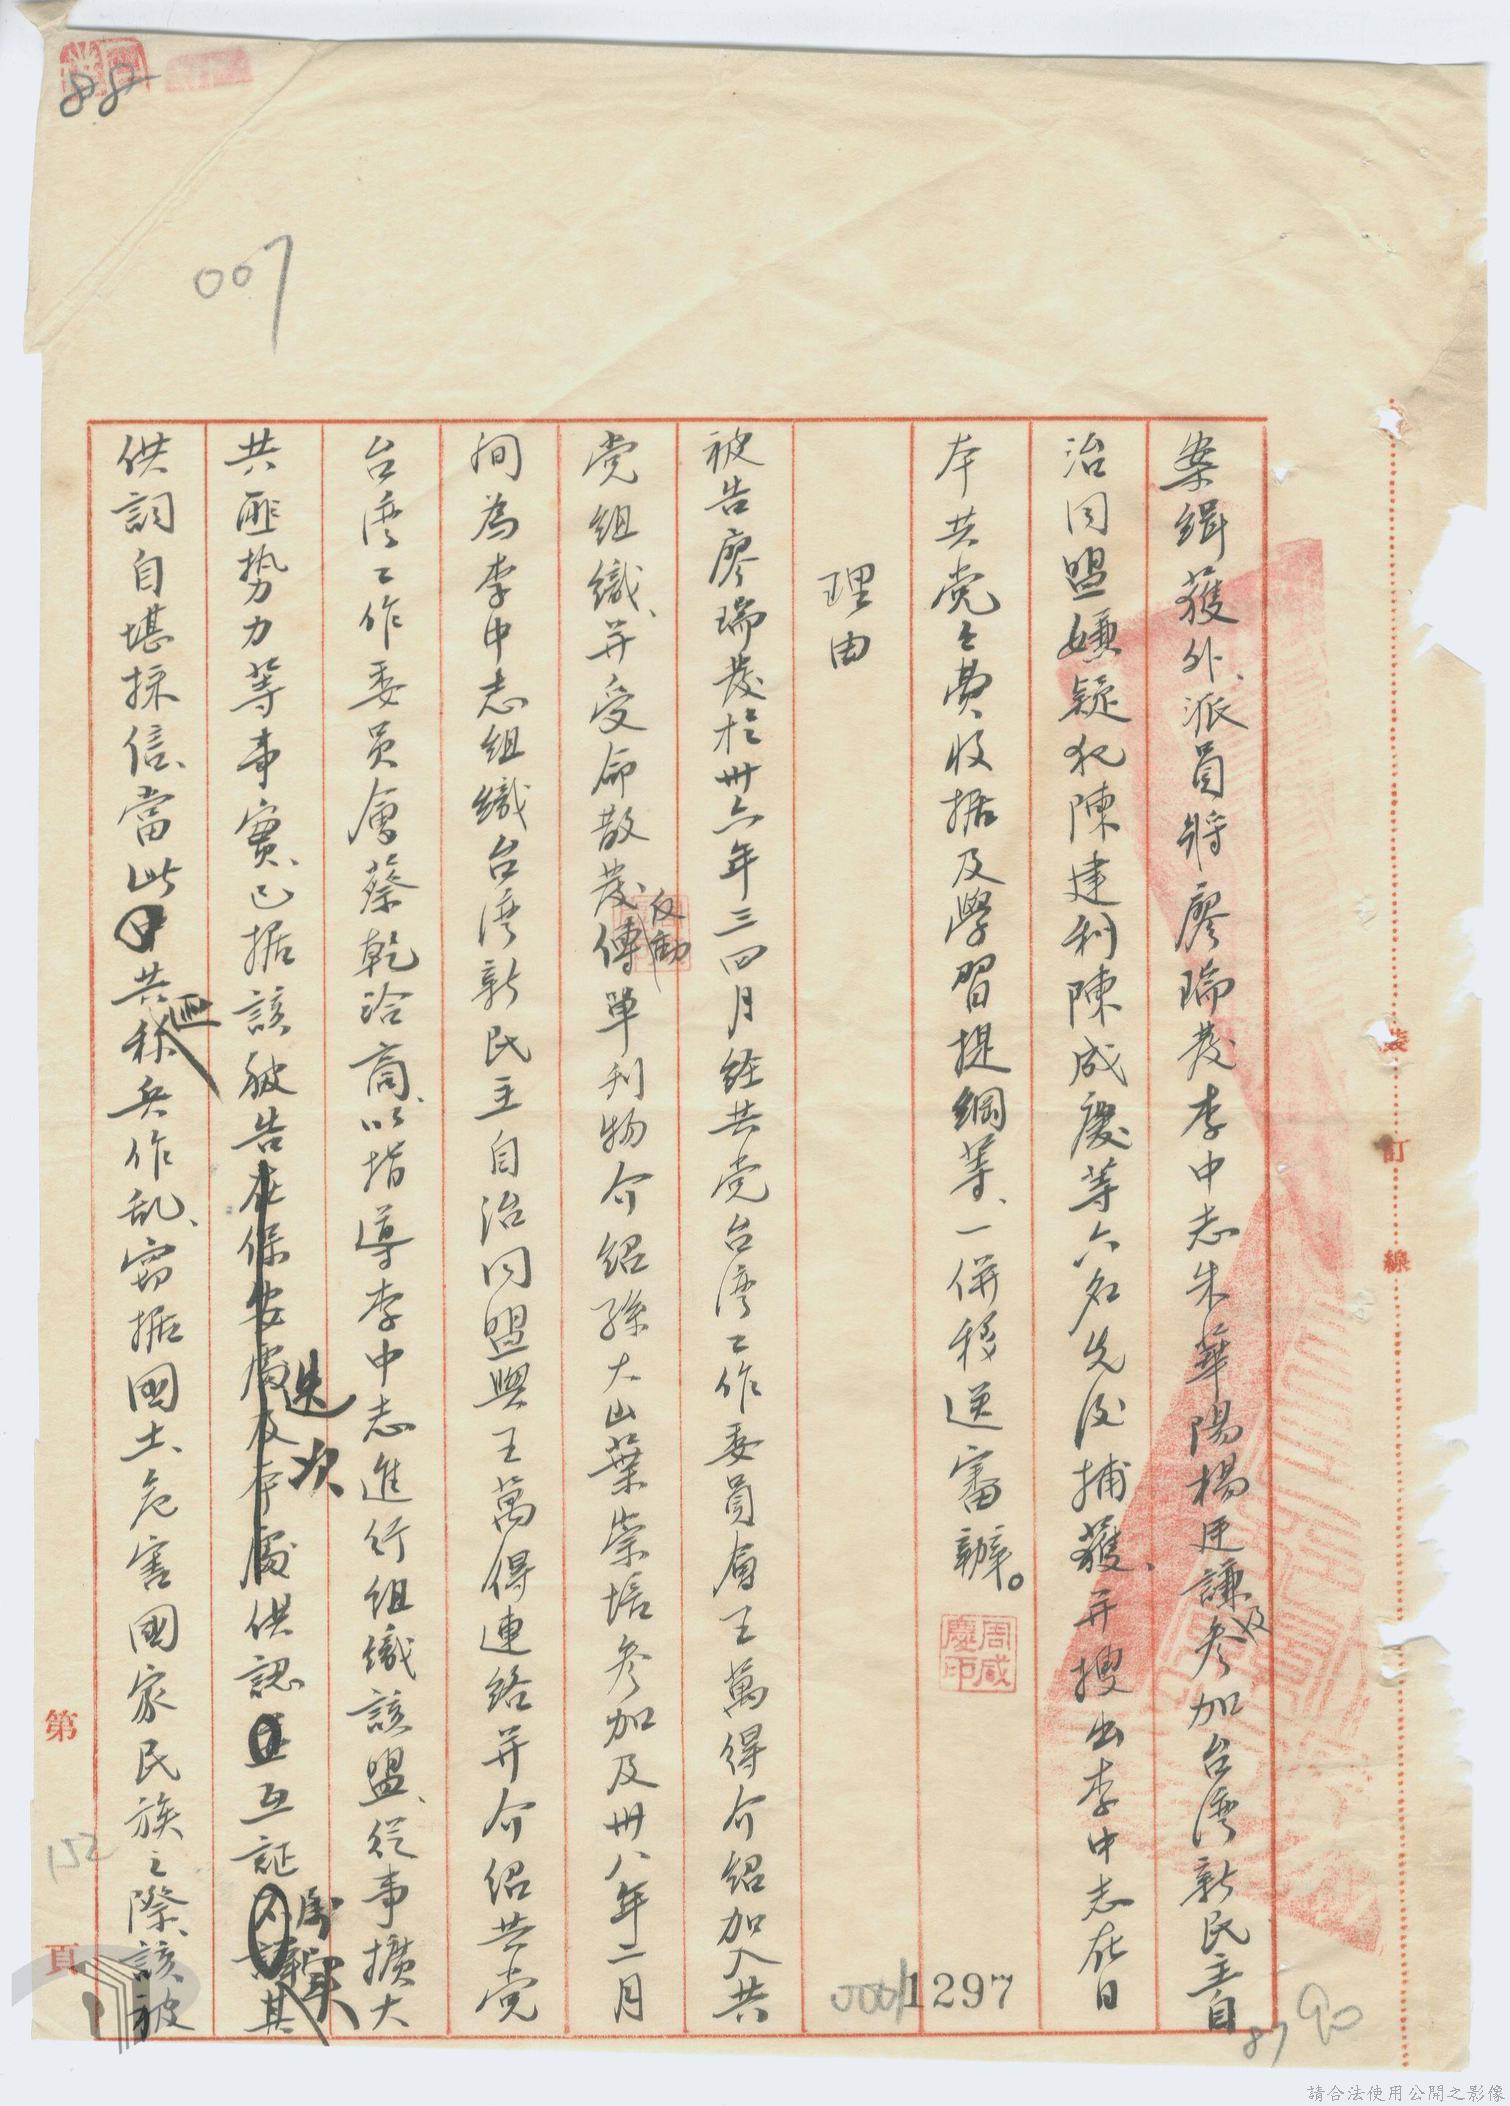 88
007
案緝獲外、派員將廖瑞發李中志朱華陽楊廷謙及參加台灣新民主自
治同盟嫌疑犯陳建利陳成慶等六名先後捕獲、并搜出李中志在日
本共党之費收据及學習提綱等、一併移送審辦。
周咸慶印
理由
被告廖瑞發於卅六年三四月経共党台湾工作委員會王萬得介紹加入共
党組織、并受命散發反動傳單刊物介紹孫大山葉崇培參加及卅八年二月
间為李中志組織台湾新民主自治同盟與王萬得連絡并介紹共党
台湾工作委员會蔡乾洽商、以指導李中志進行組織該盟、從事擴大
共匪势力等事實、已据該被告迭次供認互証屬實其
供詞自堪採信、當此共匪称兵作乱、窃据國土、危害國家民族之際、該被
裝
訂
線
第
頁
152
000/1297
87
90
請合法使用公開之影像